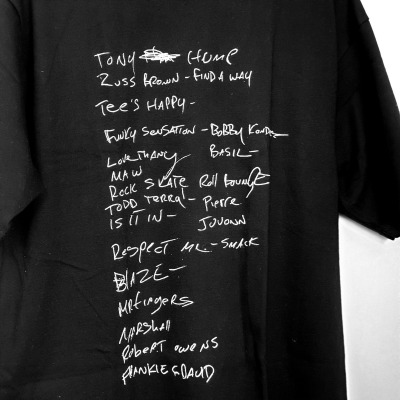 TONY HUMP
RUSS BROWN - FIND A WAY
TEE'S HAPPY -
FUNKY SENSATION - BOBBY KONDERS
LOVE THANG BASIL -
MAW
ROCK SKATE ROLL BOUNCE
TODD TERRY - PIERRE
IS IT IN - JOVONN
RESPECT ME - SMACK
BLAZE -
MR FINGERS
MARSHALL
ROBERT OWENS
FRANKIE & DAVID